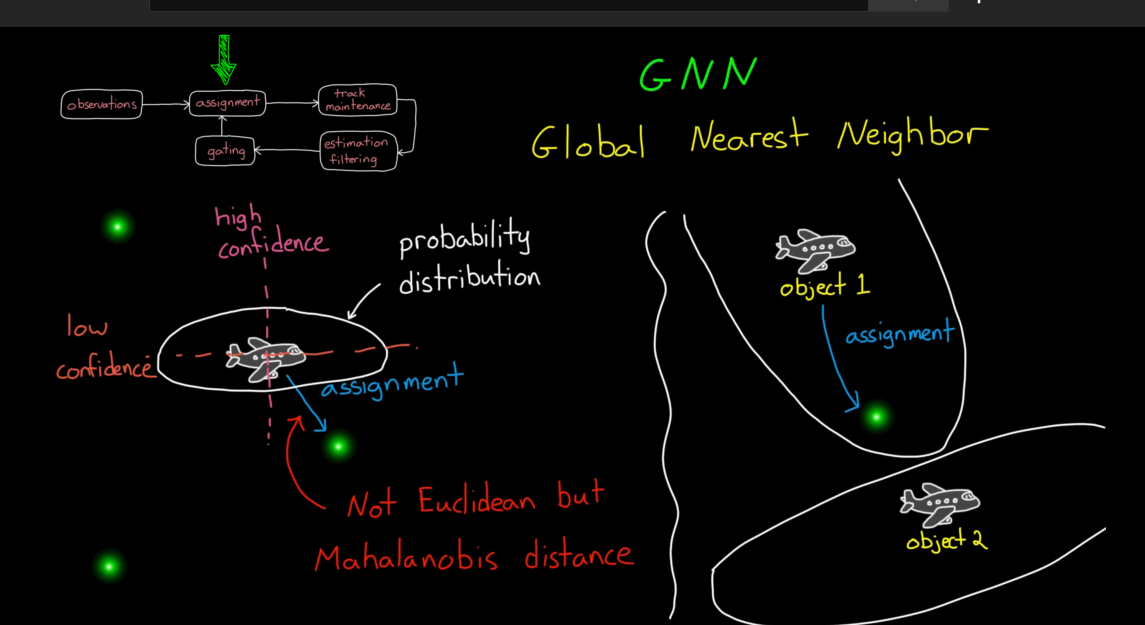 observations
assignment
track
maintenance
gating
estimation
filtering
GNN
Global Nearest Neighbor
high
confidence
probability
distribution
low
confidence
assignment
Not Euclidean but
Mahalanobis distance
object 1
assignment
object 2